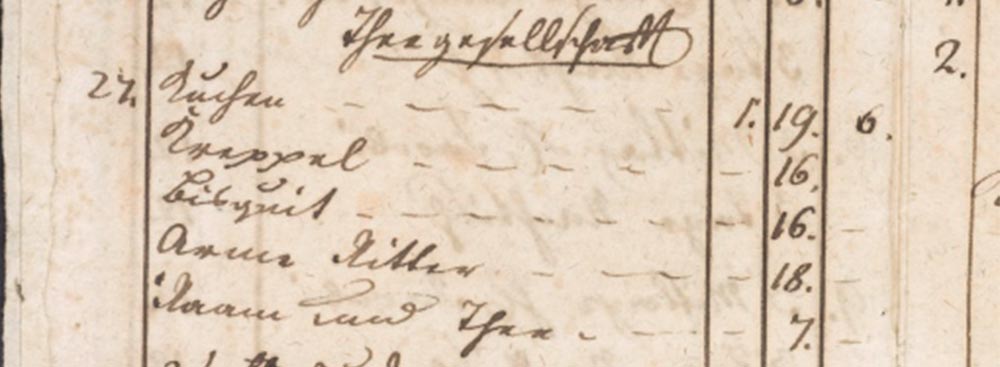 Theegesellschafft
2.
27. Kuchen 1. 19. 6.
Kreppel 16.
Bisquit 16.
Arme Ritter 18.
Raam und Thee 7.